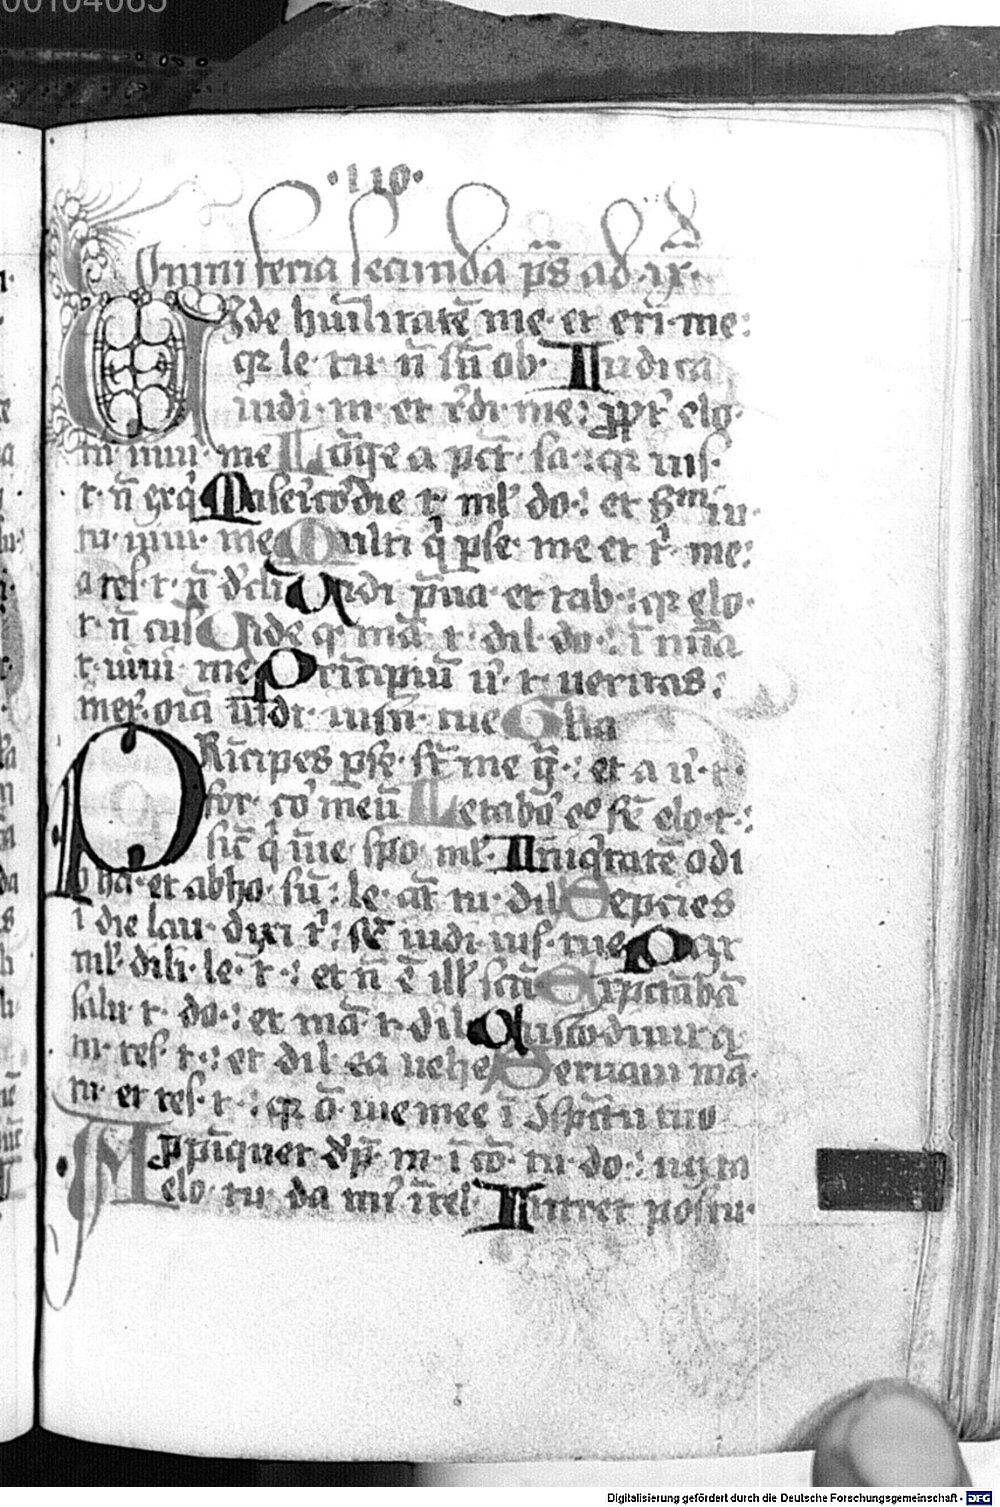 00104085
·110·
Omni feria secunda ps̄ ad ix·
Vide hūilitatē me· et eri· me:
qr le· tu· n̄ sū ob· Iudica
iudi· m· et r̄di· me: ꝓpt̓ elo·
tu· uiui· me Lōge a pct̄· sa·: qr ius·
t· n̄ exq̇ Miser̓cordie t· ml̓· do·: et s̄m iu·
tu· uiui· me Multi q̇ ꝑse· me et t̓· me:
a tes· t· n̄ d̓cli Uidi p̄ua· et tab·: qr elo·
t· n̄ cus Vide q· mā· t· dil· do·: ī mīa
t· uiui· me Prīcipiū u̓· t· ueritas:
iudi· iusti· tue Glīa
Prīcipes ꝑse· st̄ me g̅·: et a u̓· t·
for· co· meū Letabor̓ sr̄ elo· t·:
sic̄ q̇ īue· spo· ml̓· Iniq̇tatē odi
o ha· et abho· sū: le· at̄ tu· dil Sepcies
ī die lau· dixi t̓: sr̄ iudi· ius· tue Pax
ml̓· dili· le· t·: et n̄ ē ill̓ scā Exꝑctabā
salu· t· do·: et mā· t· dil Custodiuit a·
m· tes· t·: et dil· ea uehe Seruaui mā·
tu· et tes· t·: qr ō· uie mee ī ꝯspc̄tu tuo
Appīquet dep̄· m· ī cō· tu· do·: iuxta
elo· tu· da mi̓ ītel· Intret postu·
Digitalisierung gefördert durch die Deutsche Forschungsgemeinschaft - DFG